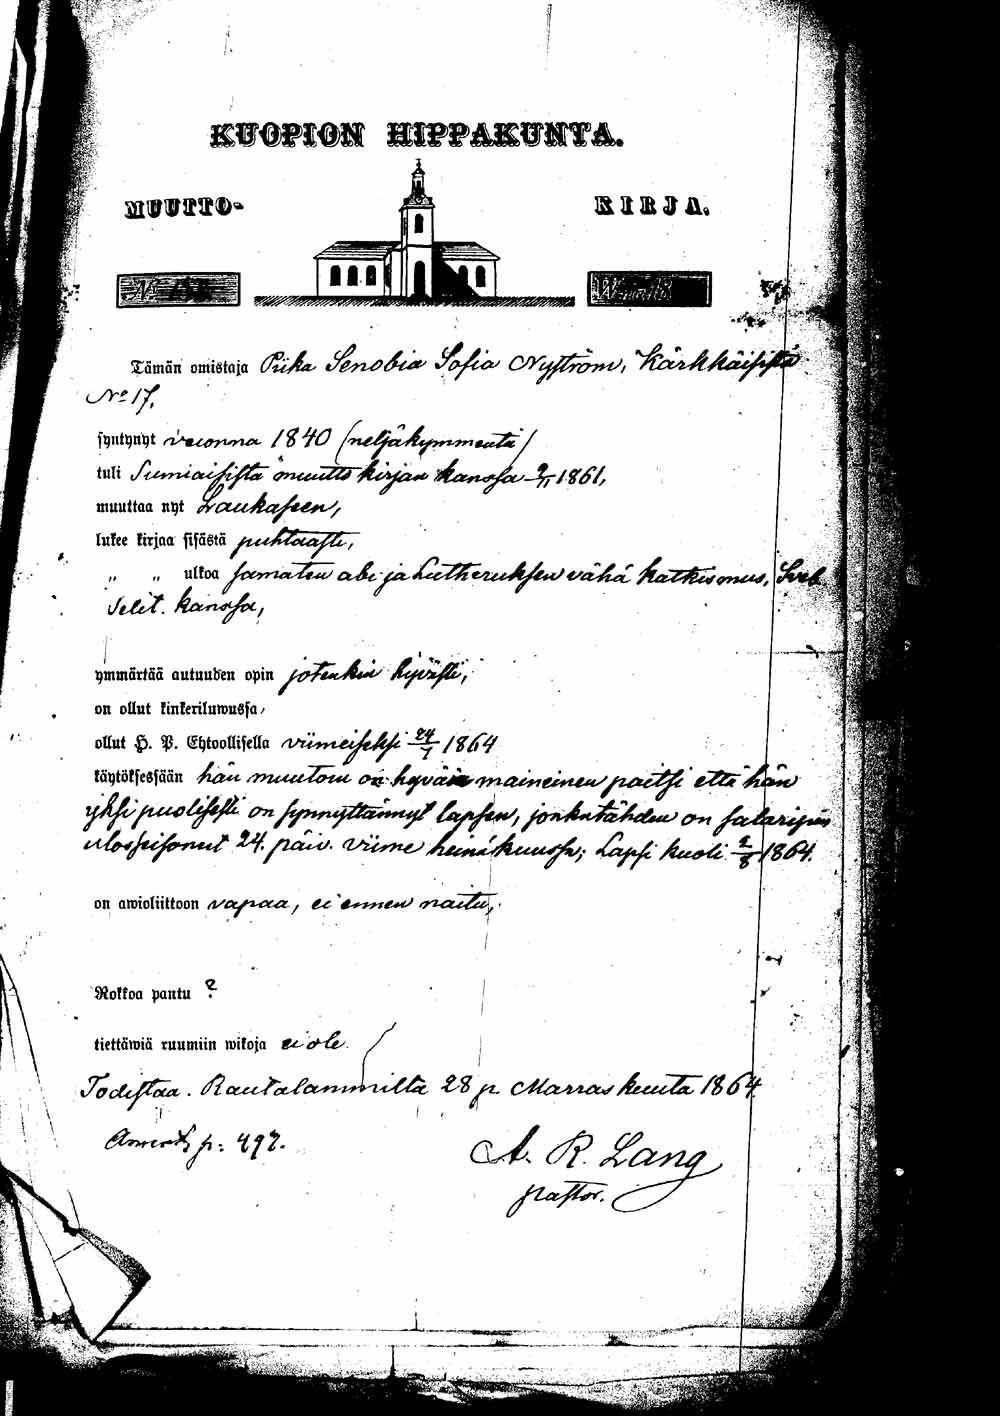 KUOPION HIPPAKUNTA.
MUUTTO- KIRJA.
No
Tämän omistaja Piika Senobia Sofia Nyström, Kärkkäisistä
No 17,
syntynyt vuonna 1840 (neljäkymmentä)
tuli Sumiaisista muutto kirjan kanssa 9/11 1861,
muuttaa nyt Laukaseen,
lukee kirjaa sisästä puhtaasti,
„ „ ulkoa samaten abc ja Lutheruksen vähä katkismus, Sveb.
Selit. kanssa,
ymmärtää autuuden opin jotenkin hyvästi,
on ollut kinkeriluwussa,
ollut H. P. Ehtoollisella viimeiseksi 24/7 1864
käytöksessään hän muutoin on hyvän maineinen paitsi että hän
yksi puolisesti on synnyttännyt lapsen, jonkatähden on salaripin
ulosseisonut 24. päiv. viime heinäkuussa; Lapsi kuoli 2/8 1864.
on awioliittoon vapaa, ei ennen naitu,
Rokkoa pantu ?
tiettäwiä ruumiin wikoja ei ole.
Todistaa. Rautalammilta 28 p. Marraskuuta 1864.
p: 497.
A. R. Lang
pastor.